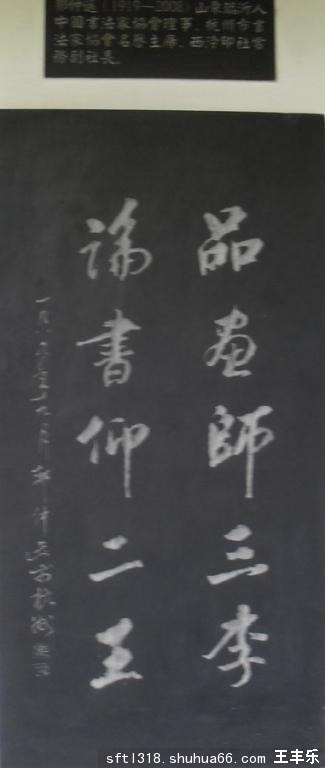 仲選（1919—2008）山東臨沂人
中國書法家協會理事，杭州市書
法家協會名譽主席，西泠印社常
務副社長。
品畫師三李
論書仰二王
一九八 年 月郭仲選
sftl318.shuhua66.com 王丰乐